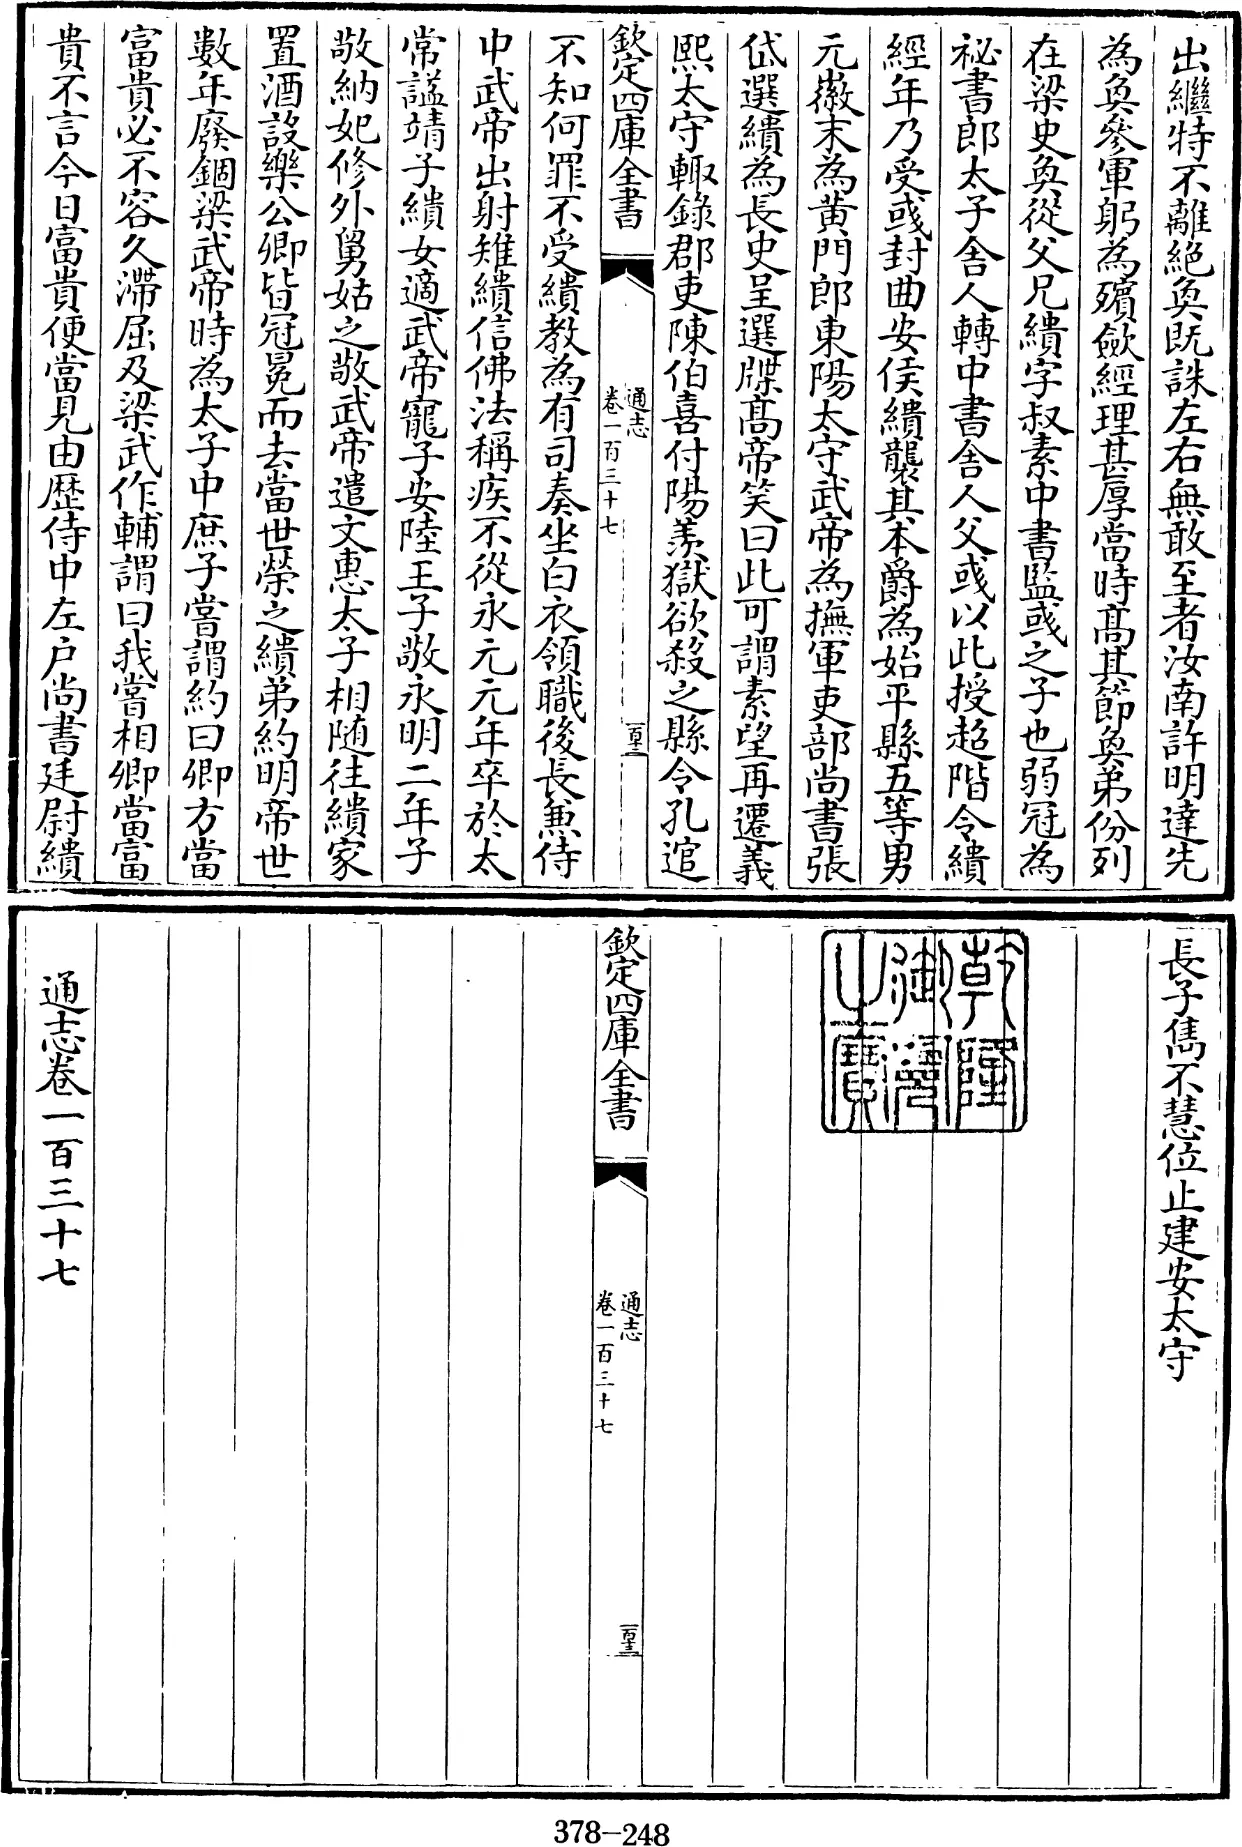 出繼特不離絕奐既誅左右無敢至者汝南許明達先
為奐參軍躬為殯歛經理甚厚當時髙其節奐弟份列
在梁史奐從父兄繢字叔素中書監彧之子也弱冠為
祕書郎太子舍人轉中書舍人父彧以此授超階令繢
經年乃受彧封曲安侯繢襲其本爵為始平縣五等男
元徽末為黄門郎東陽太守武帝為撫軍吏部尚書張
岱選繢為長史呈選牒髙帝笑曰此可謂素望再遷義
熙太守輙錄郡吏陳伯喜付陽羨獄欲殺之縣令孔逭
欽定四庫全書
通志
卷一百三十七
百十二
不知何罪不受繢教為有司奏坐白衣領職後長兼侍
中武帝出射雉繢信佛法稱疾不從永元元年卒於太
常諡靖子繢女適武帝寵子安陸王子敬永明二年子
敬納妃修外舅姑之敬武帝遣文惠太子相随往繢家
置酒設樂公卿皆冠冕而去當世榮之繢弟約明帝世
數年廢錮梁武帝時為太子中庶子嘗謂約曰卿方當
富貴必不容久滯屈及梁武作輔謂曰我嘗相卿當富
貴不言今日富貴便當見由歴侍中左户尚書廷尉繢
長子儁不慧位止建安太守
乾隆
御覽
之寶
欽定四庫全書
通志
卷一百三十七
百十三
通志卷一百三十七
378-248